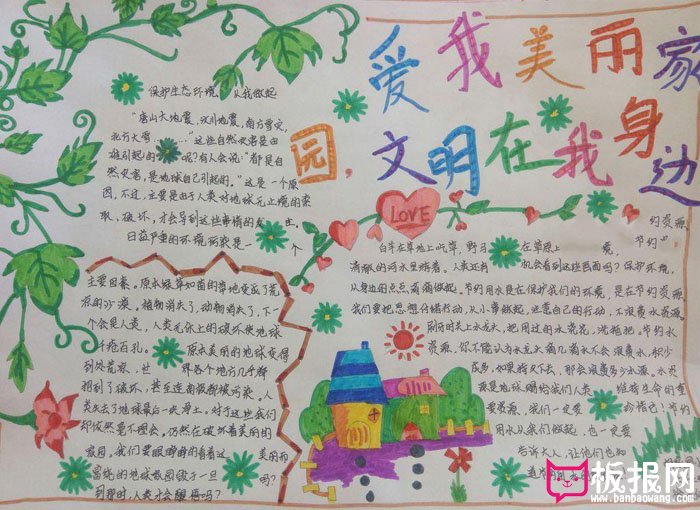 爱我美丽家
园,文明在我身
边
保护生态环境 从我做起
"唐山大地震,汶川地震,南方雪灾,
北方大旱……"这些自然灾害是由
谁引起的 呢?有人会说:"都是自
然灾害,是地球自己引起的。"这是一个原
因,不过,主要是由于人类对地球无止境的索
取、破坏,才会导致这些事情的发生。
日益严重的环境污染是一个
主要因素。原本绿草如茵的草地变成了荒
凉的沙漠。植物消失了,动物消失了,下一
个会是人类,人类无休止的破坏使地球
千疮百孔。原本美丽的地球变得
到处荒凉,世界各个地方几乎都
相到了破坏,甚至连南极都被污染。人
类失去了地球最后一块净土。对于这些我们
却依然毫不理会。仍然在破坏着美丽的
家园,我们要眼睁睁的看着这 美丽而
富饶的地球家园毁于一旦吗?
到那时,人类才会醒悟吗?
LOVE
白羊在草地上吃草,野马在草原上
清澈的河水里嬉着。人类还有机会看到这些画面吗?保护环境,
从身边的点点滴滴做起。节约用水是在保护我们的环境,是在节约资源
我们要把思想付诸行动,从小事做起,注意自己的行动,不浪费水资源
刷牙时关上水龙头,把用过的水浇花,洗拖把。节约水
资源,你不能认为水龙头滴几滴水不会浪费水,积少
成多,如果长久下去,那会浪费多少水源。水资
源是地球赐给我们人类 维持生命的重
要资源,我们一定要珍惜它!节约
用水从我们做起,也一定要
告诉大人,让他们也知
约资源
节约
板报网
www.banbaowang.com